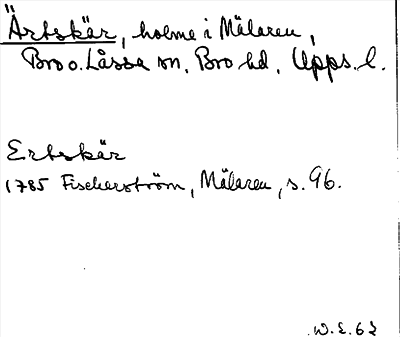 Ärtskär, holme i Mälaren,
Bro o. Låssa sn, Bro hd, Upps. l.
Ertskär
1785 Fischerström, Mälaren, s. 96.
W. E. 63